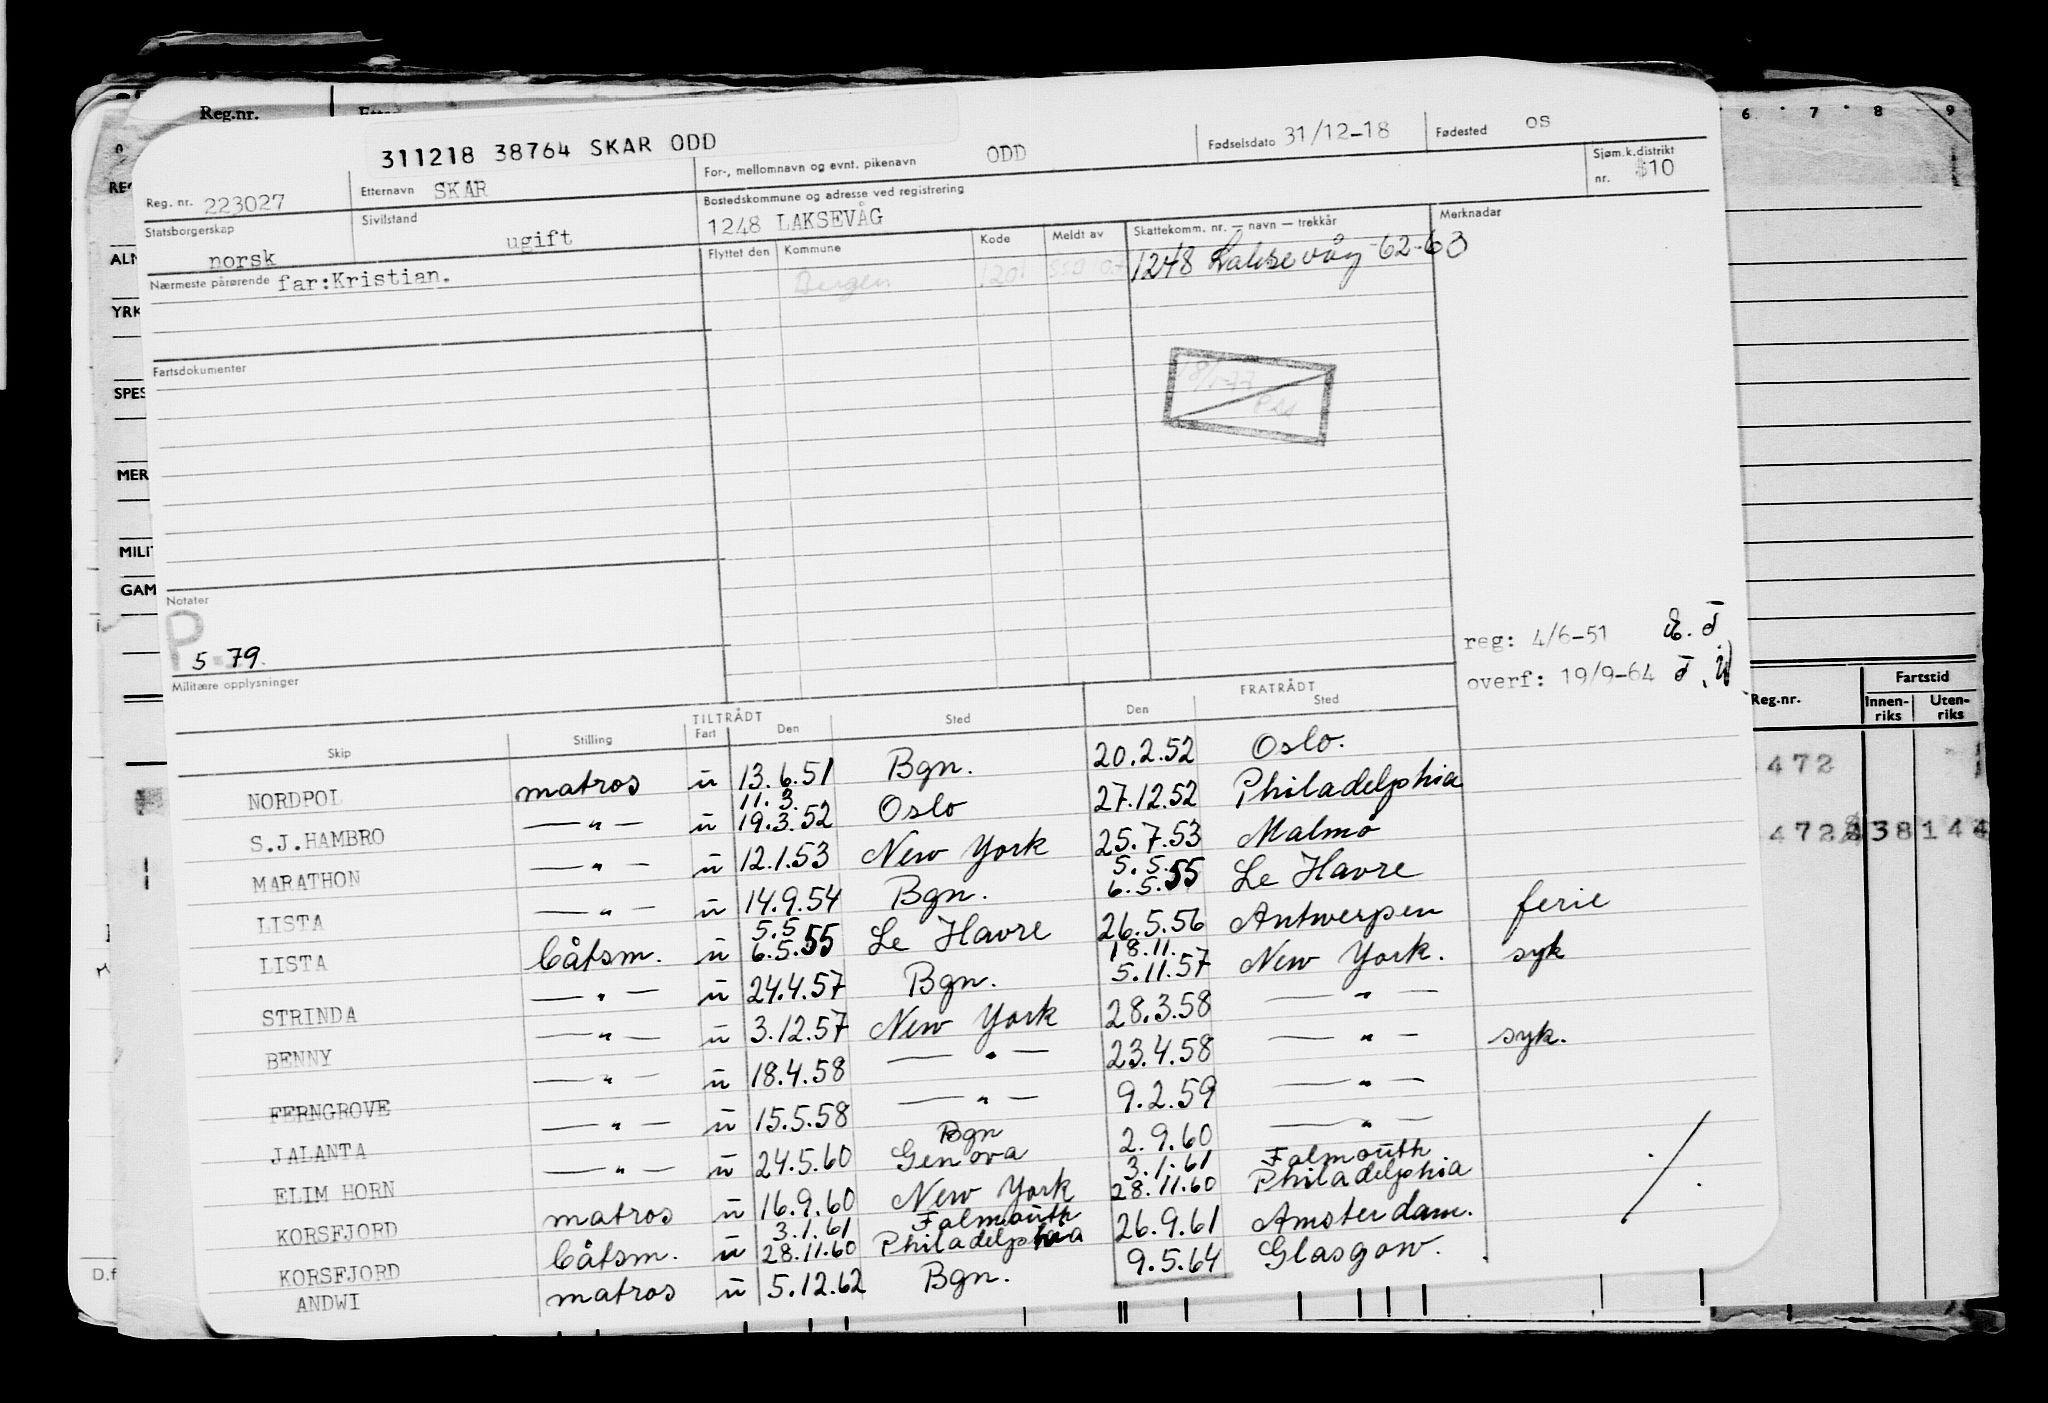 Reg.nr.
6 7 8 9
311218 38764 SKAR ODD
Reg. nr. 223027 Etternavn SKAR For-, mellomnavn og evnt. pikenavn ODD Fødselsdato 31/12-18 Fødested OS
Statsborgerskap norsk Sivilstand ugift Bostedskommune og adresse ved registrering 1248 LAKSEVÅG Sjøm.k.distrikt nr. 10
Nærmeste pårørende far:Kristian. Flyttet den Kommune Kode Meldt av Skattekomm. nr. — navn — trekkår Merknadar
Bergen 1201 1248 Laksevåg 62-63
Fartsdokumenter
18/1-77
Notater
P 5 79.
Militære opplysninger
reg: 4/6-51
overf: 19/9-64
TILTRÅDT FRATRÅDT
Skip Stilling Fart Den Sted Den Sted
NORDPOL matros u 13.6.51 Bgn. 20.2.52 Oslo.
S.J.HAMBRO — " — u 11.3. 19.3.52 Oslo 27.12.52 Philadelphia
MARATHON — " — u 12.1.53 New York 25.7.53 Malmø
LISTA — " — u 14.9.54 Bgn. 5.5. 6.5.55 Le Havre
LISTA båtsm. u 5.5 6.5.55 Le Havre 26.5.56 Antwerpen ferie
STRINDA — " — u 24.4.57 Bgn. 18.11. 5.11.57 New York. syk
BENNY — " — u 3.12.57 New York 28.3.58 — " —
FERNGROVE — " — u 18.4.58 — " — 23.4.58 — " — syk.
JALANTA — " — u 15.5.58 — " — 9.2.59 — " —
ELIM HORN — " — u 24.5.60 Bgn Genova 2.9.60 — " —
KORSFJORD matros u 16.9.60 New York 3.1.61 28.11.60 Falmouth Philadelphia
KORSFJORD båtsm. u 3.1.61 28.11.60 Falmouth Philadelphia 26.9.61 Amsterdam.
ANDWI matros u 5.12.62 Bgn. 9.5.64 Glasgow.
YRK
SPES
MER
MILI
GAM
Reg.nr. Fartstid
Innen-riks Uten-riks
472
472 38 144
D.f